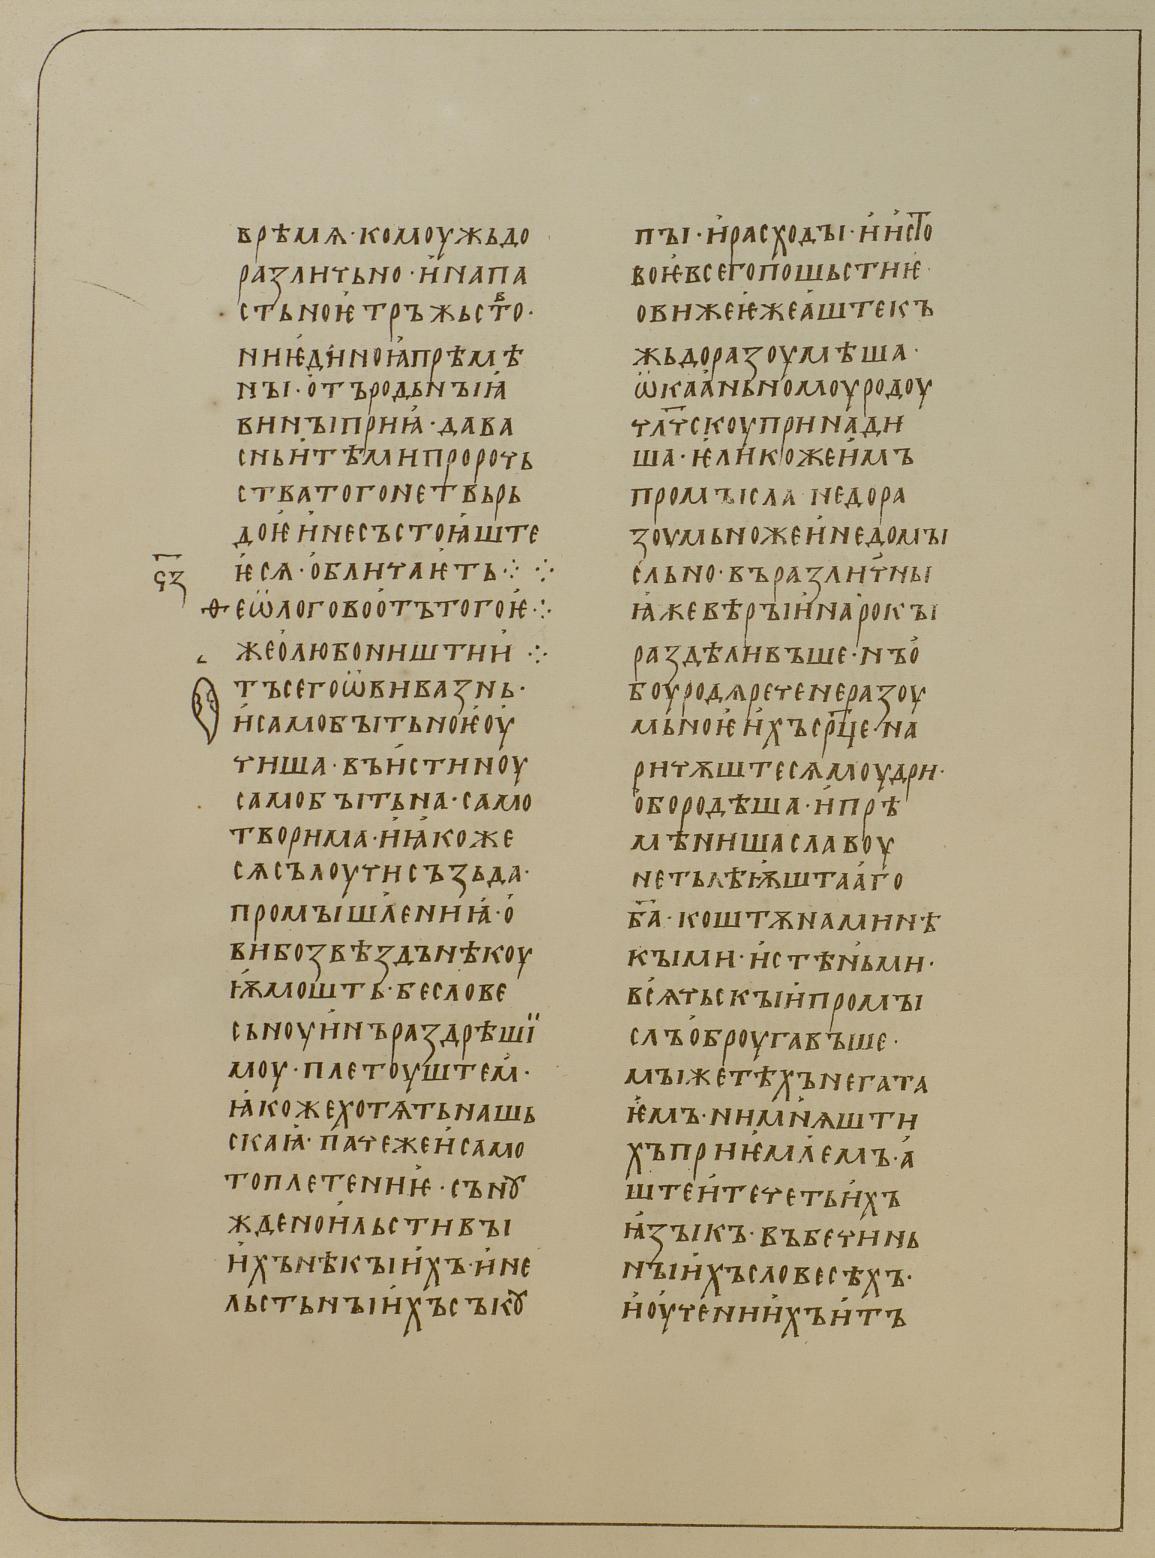 врѣмѧ·комоужьдо
различьно·и҆напа
стьноѥ҆тръжьст҃во·
ниѥ҆ди҆ноꙗ҆прѣмѣ
нꙑ·о҆търодьнꙑꙗ҆
винꙑприꙗ҆·дава
сньи҆тѣмипророчь
стватогонетвьрь
доѥ҆и҆несъстоꙗ҆ште
ѥ҆сѧ·о҆бличаѥ҆ть·
ѕ҃з
ѳеѡ҆логовоо҆тътогоѥ҆
жео҆любоништии҆
О
тъсегоѡ҆вивазнь·
и҆самобꙑтьноѥ҆оу҆
чиша·въи҆стиноу
самобꙑтьна·само
творима·и҆ꙗ҆коже
сѧсълоучисъзьда·
промꙑшлениꙗ҆·о҆
вибозвѣздънѣкоу
ѭ҆мошть·беслове
сьноуи҆нъраздрѣшї
моу·плетоуштем҆·
ꙗ҆кожехотѧтьнашь
скаꙗ҆·пачежеи҆само
топлетениѥ҆·съноꙋ
жденои҆льстивꙑ
и҆хънѣкꙑи҆хъ·и҆не
льстьнꙑи҆хъсъкꙋ
пꙑ·и҆расходꙑ·и҆и҆ст҃о
воѥ҆всегопошьстиѥ҆
овижеѥ҆жеа҆штекъ
жьдоразоумѣша·
ѡ҆каа҆ньномоуродоу
чл҃чскоуприна҆ди
ша·ѥ҆ликожеи҆мъ
промꙑсла недора
зоумьножеи҆недомꙑ
сльно·въразличнꙑ
ꙗ҆жевѣрꙑи҆нарокꙑ
раздѣливъше·нъо҆
боуродѧреченеразоу
мьноѥ҆и҆хъср҃це·на
ричѫштесѧмоудри·
о҆бородѣша·и҆прѣ
мѣнишаславоу
нетьлѣѭ҆штаа҆го
б҃а·коштѫнаминѣ
кꙑми·и҆стѣньми·
всѧчьскꙑи҆промꙑ
слъо҆броугавъше·
мꙑжетѣхънегата
ѥ҆мъ·нимнѧшти
хъприѥ҆млемъ·а҆
штеи҆течетьи҆хъ
ꙗ҆зꙑкъ·въбечинь
нꙑи҆хъсловесѣхъ·
и҆оу҆чении҆хъи҆тъ